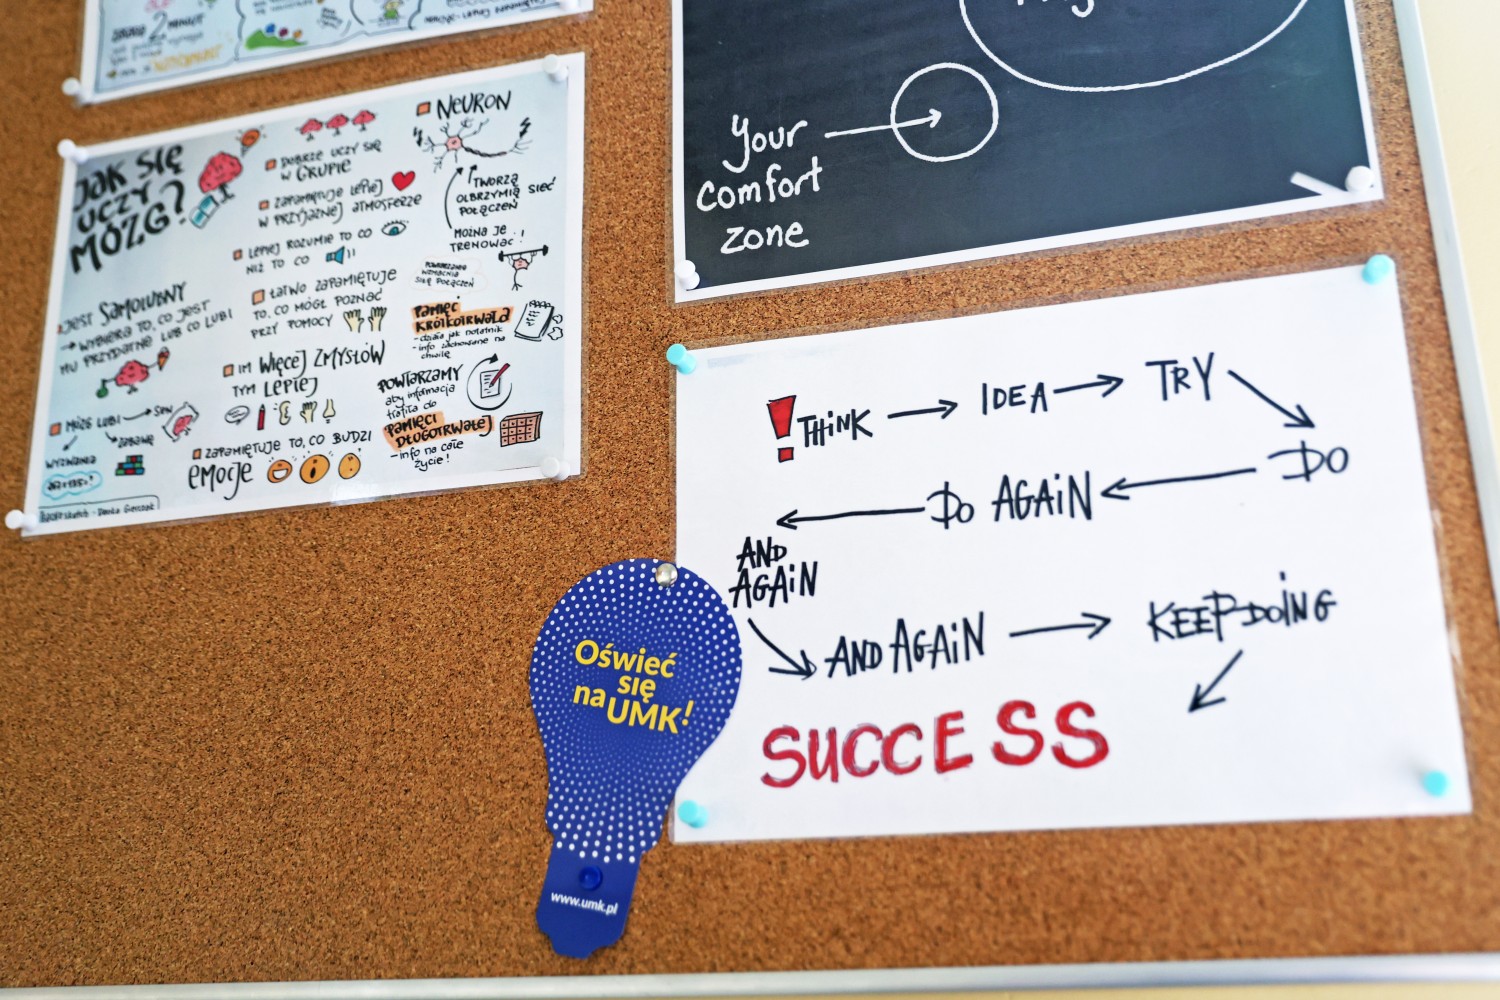 2 minut
JAK SIĘ
UCZY
MÓZG?
JEST SAMOLUBNY
→ WYBIERA TO, CO JEST
MU PRZYDATNE LUB CO LUBI
MÓZG LUBI → SEN
ZABAWĘ
WYZWANIA
DOBRZE UCZY SIĘ
W GRUPIE
ZAPAMIĘTUJE LEPIEJ
W PRZYJAZNEJ ATMOSFERZE
LEPIEJ ROZUMIE TO CO
NIŻ TO CO
ŁATWO ZAPAMIĘTUJE
TO, CO MÓGŁ POZNAĆ
PRZY POMOCY
IM WIĘCEJ ZMYSŁÓW
TYM LEPIEJ
ZAPAMIĘTUJE TO, CO BUDZI
EMOCJE
NEURON
TWORZĄ
OLBRZYMIĄ SIEĆ
POŁĄCZEŃ
MOŻNA JE
TRENOWAĆ!
POWTARZANIE
WZMACNIA
SIŁĘ POŁĄCZEŃ
PAMIĘĆ
KRÓTKOTRWAŁA
- działa jak notatnik
- info zachowane na
chwilę
POWTARZAMY
aby informacja
trafiła do
PAMIĘCI
DŁUGOTRWAŁEJ
- info na całe
życie!
Your
comfort
zone
! THINK → IDEA → TRY
DO
DO AGAIN
AND
AGAIN
AND AGAIN → KEEP DOING
SUCCESS
Oświeć
się
na UMK!
www.umk.pl